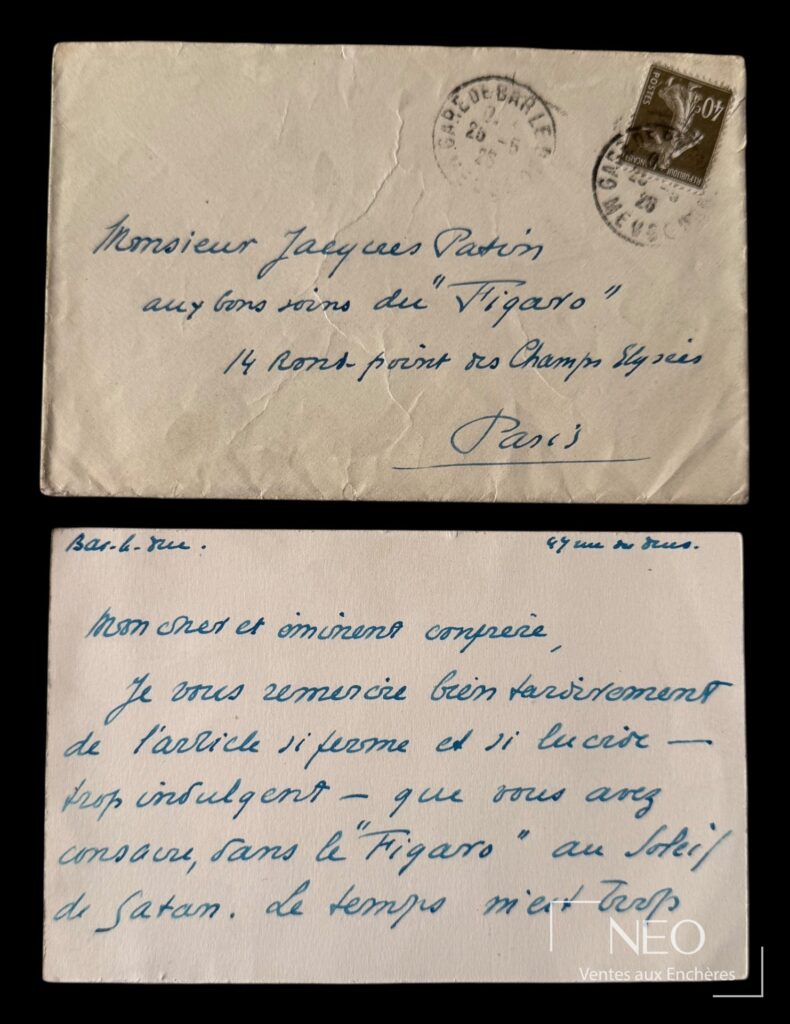 GARE DE BAR LE D
26 -6
26
MEUSE
POSTES
40c
REPUBLIQUE FRANÇAISE
GARE DE
26
MEUSE
Monsieur Jacques Patin
aux bons soins du "Figaro"
14 Rond-point des Champs Elysées
Paris
Bar-le-Duc.
47 rue du
Mon cher et éminent confrère,
Je vous remercie bien tardivement
de l'article si ferme et si lucide —
trop indulgent — que vous avez
consacré, dans le "Figaro" au Soleil
de Satan. Le temps m'est trop
NEO
Ventes aux Enchères